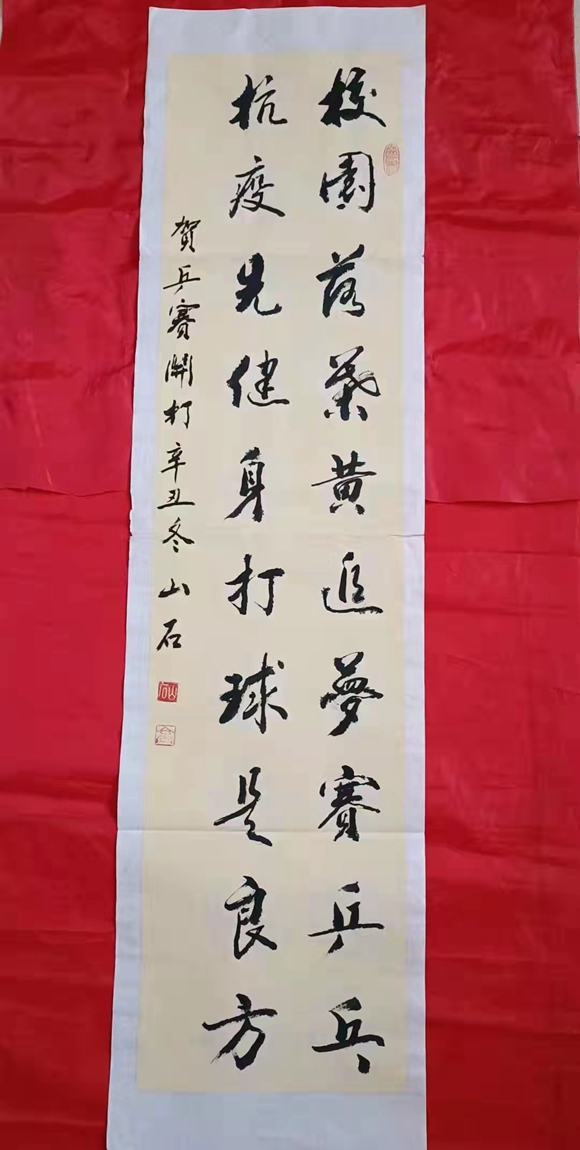 校園落葉黄追夢賽乒乓
抗疫先健身打球是良方
賀乒賽開打辛丑冬山石